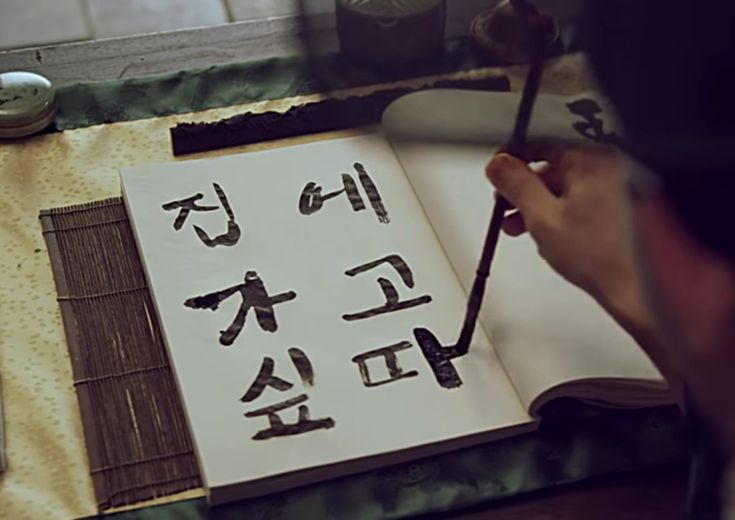 집 에
가 고
싶 마